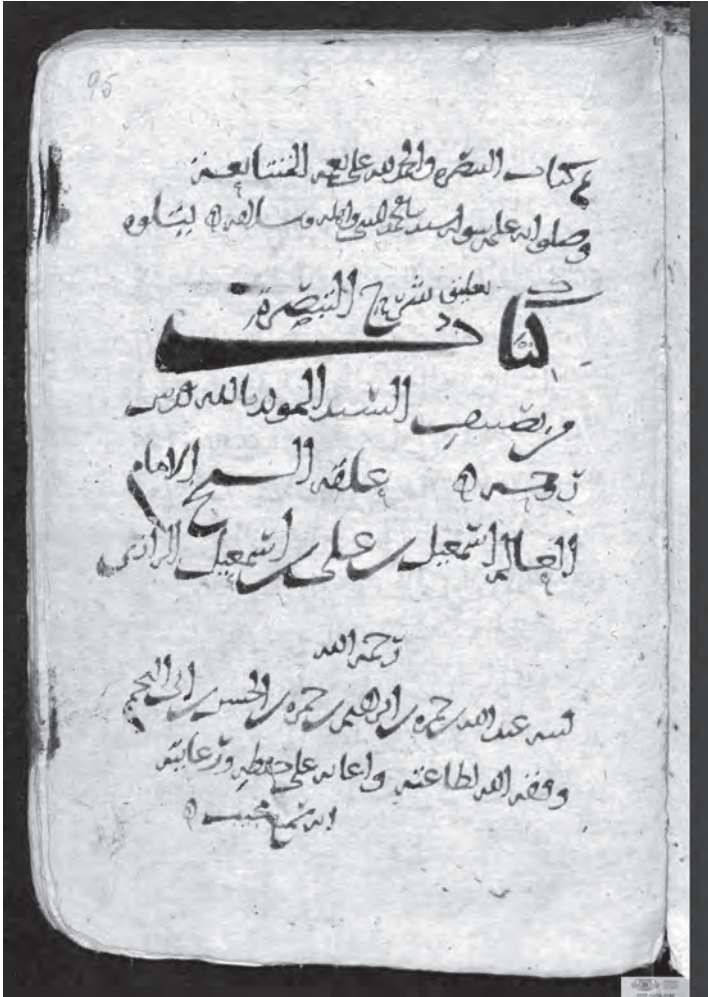 95
تم كتاب التبصره والحمد لله على نعمه
وصلواته على رسوله سيدنا محمد النبي واهله وسلامه يتلوه
كتاب تعليق شرح التبصرة
من تصنيف السيد المويد بالله قدس
روحه علقه الشيخ الامام
العالم اسمعيل بن على بن اسمعيل الرازى
رحمه الله
لسه عبد الله حمزه بن ابراهيم بن حمزه بن الحسن بن ابى النجم
وفقه الله لطاعته واعانه على حفظه ورعايته
انه سميع مجيب